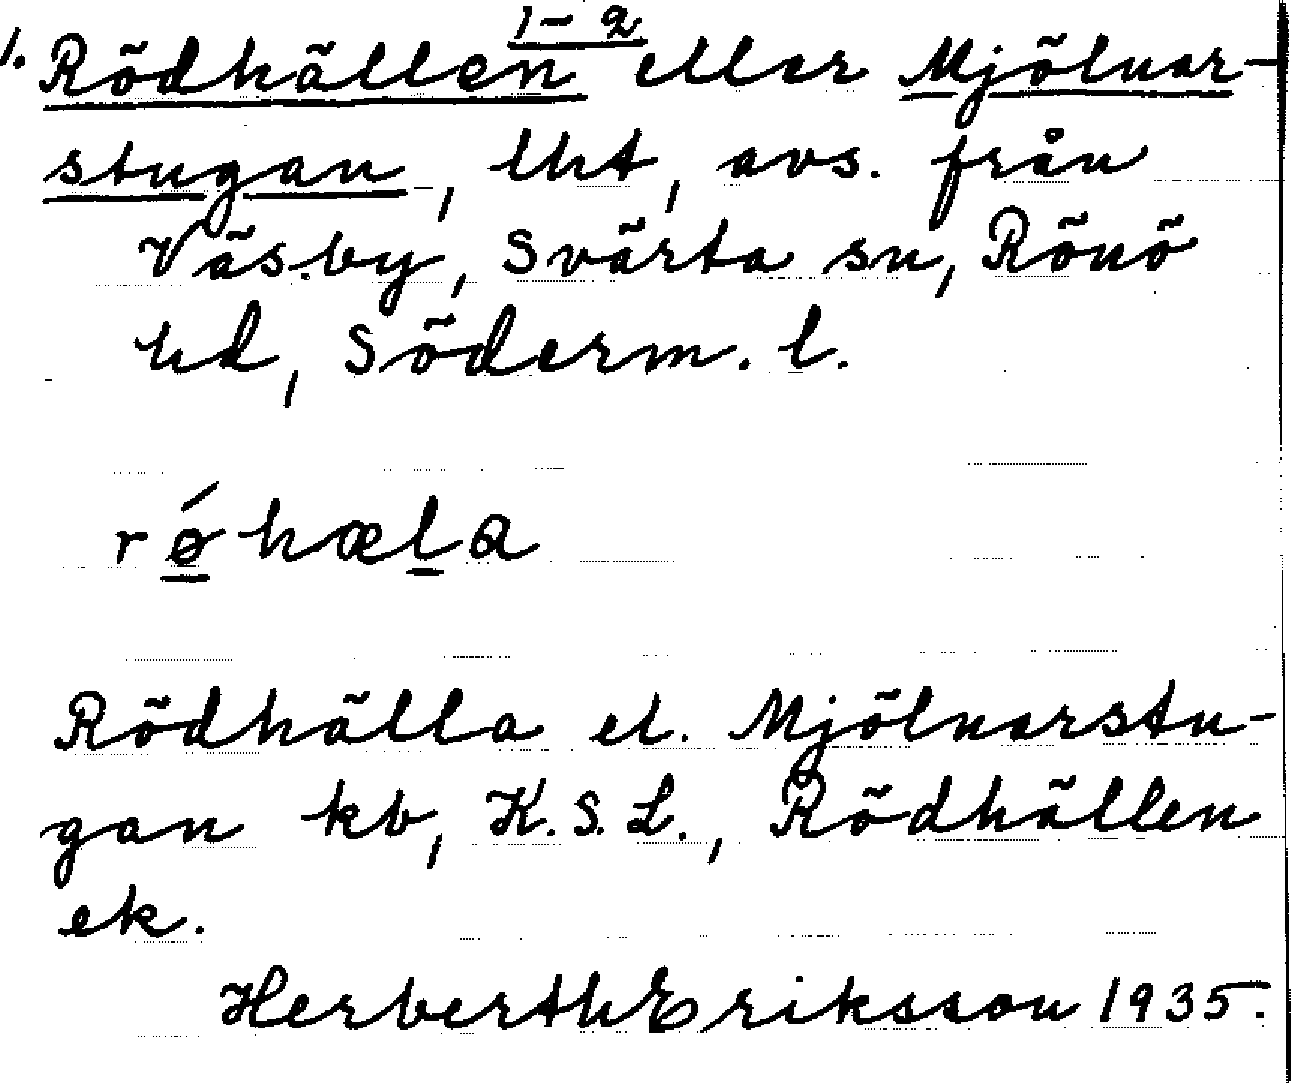 1–2
1. Rödhällen eller Mjölnar-
stugan, lht, avs. från
Väsby, Svärta sn, Rönö
hd, Söderm. l.
rǿhæla
Rödhälla el. Mjölnarstu-
gan kb, K.S.L., Rödhällen
ek.
Herberth Eriksson 1935.